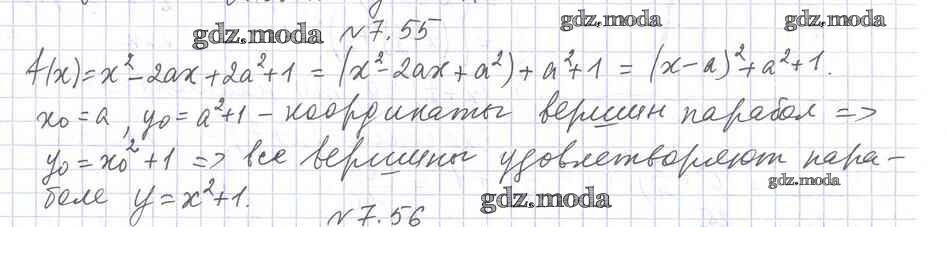 gdz.moda №7.55 gdz.moda gdz.moda
f(x)=x²-2ax+2a²+1 = (x²-2ax+a²)+a²+1 = (x-a)²+a²+1.
x₀=a, y₀=a²+1 - координаты вершин парабол =>
y₀=x₀²+1 => все вершины удовлетворяют пара-
gdz.moda
боле y=x²+1. gdz.moda
№7.56